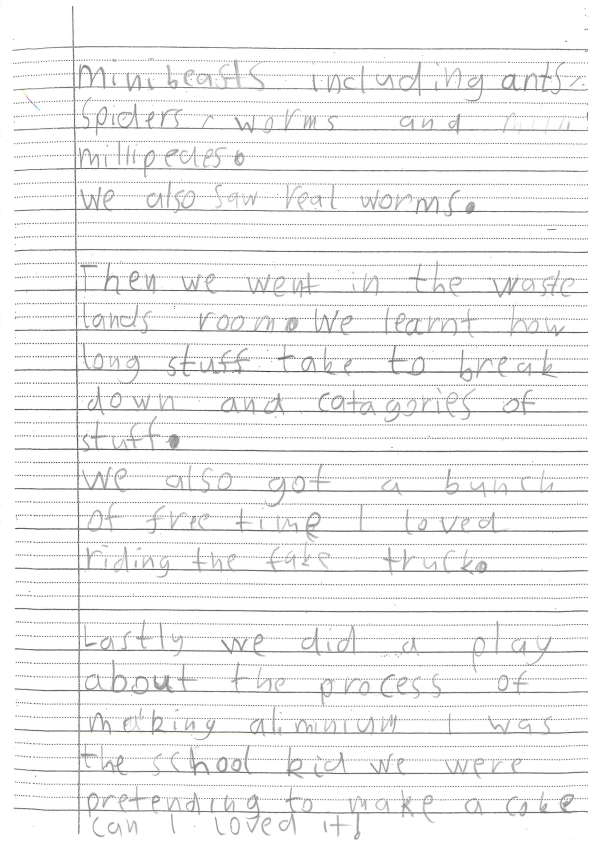 minibeasts including ants,
spiders, worms and
millipedes.
We also saw real worms.
Then we went in the waste
lands room. We learnt how
long stuff take to break
down and catagories of
stuff.
We also got a bunch
of free time I loved
riding the fake truck.
Lastly we did a play
about the process of
making aliminium I was
the school kid we were
pretending to make a coke
can I loved it!